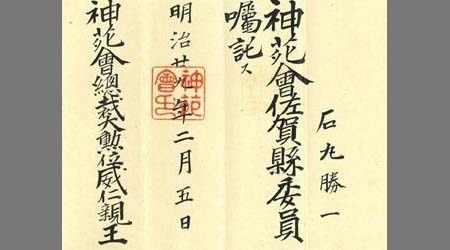 石丸勝一
神苑會佐賀縣委員
囑託ス
明治廿九年二月五日
神苑會總裁大勳位威仁親王
神苑
會印